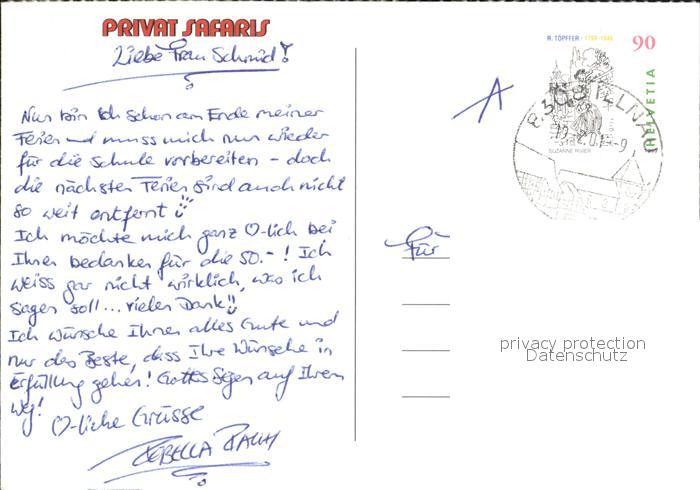 PRIVAT SAFARIS
Liebe Frau Schmid!
Nun bin ich schon am Ende meiner
Ferien und muss mich nun wieder
für die Schule vorbereiten – doch
die nächsten Ferien sind auch nicht
so weit entfernt!
Ich möchte mich ganz ♡-lich bei
Ihnen bedanken für die 50.-! Ich
weiss gar nicht wirklich, was ich
sagen soll... vielen Dank!!
Ich wünsche Ihnen alles Gute und
nur das Beste, dass Ihre Wünsche in
Erfüllung gehen! Gottes Segen auf Ihrem
Weg!
♡-liche Grüsse
A
R. TÖPFFER · 1799-1846
90
HELVETIA
SUZANNE RIVIER
Für
privacy protection
Datenschutz